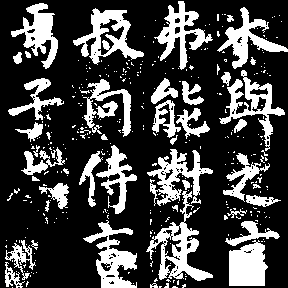 木與之言
弗能對使
叔向侍言
焉子